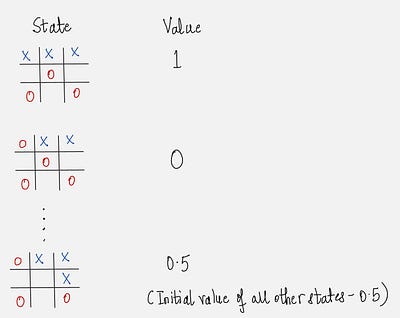 State Value
X X X 1
O
O O
O X X
O 0
O O
O X X 0.5
X
O O (Initial value of all other states - 0.5)